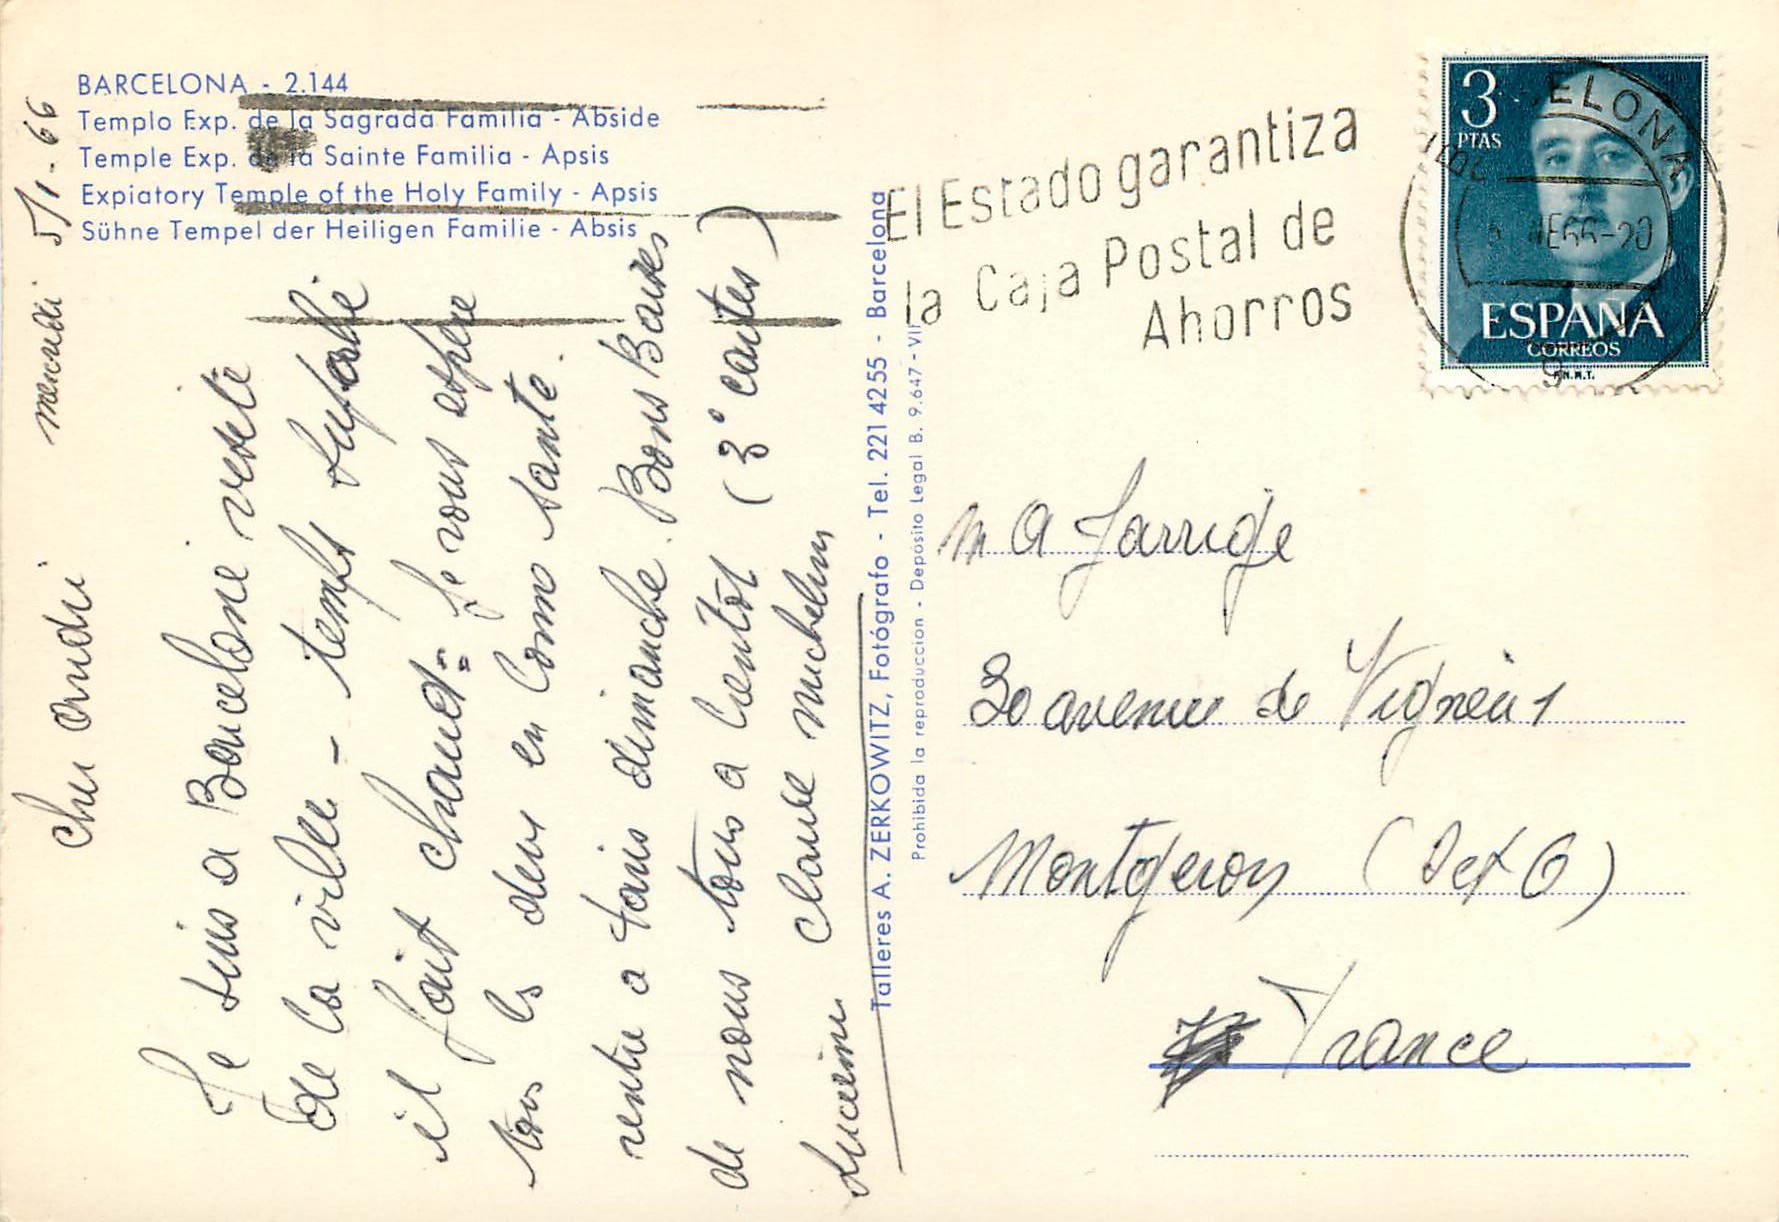 BARCELONA - 2.144
Templo Exp. de la Sagrada Familia - Abside
Temple Exp. de la Sainte Familia - Apsis
Expiatory Temple of the Holy Family - Apsis
Sühne Tempel der Heiligen Familie - Absis
mercredi 5/1-66
Cher André
Je suis a Barcelone visite
de la ville - temps superbe
il fait chaud. Je vous espère
tous les deux en bonne santé.
rentre a Paris dimanche. Bons Baisers
de nous tous a bientôt (3° cartes)
Claude Michelin
Talleres A. ZERKOWITZ, Fotógrafo - Tel. 221 42 55 - Barcelona
Prohibida la reproducción - Depósito Legal B. 9.647 - VII
El Estado garantiza
la Caja Postal de
Ahorros
3
PTAS
ESPAÑA
CORREOS
F.N.M.T.
BARCELONA
5 ENE66-20
9
M A Jarrige
30 avenue de Vigneux
Montgeron (S et O)
France